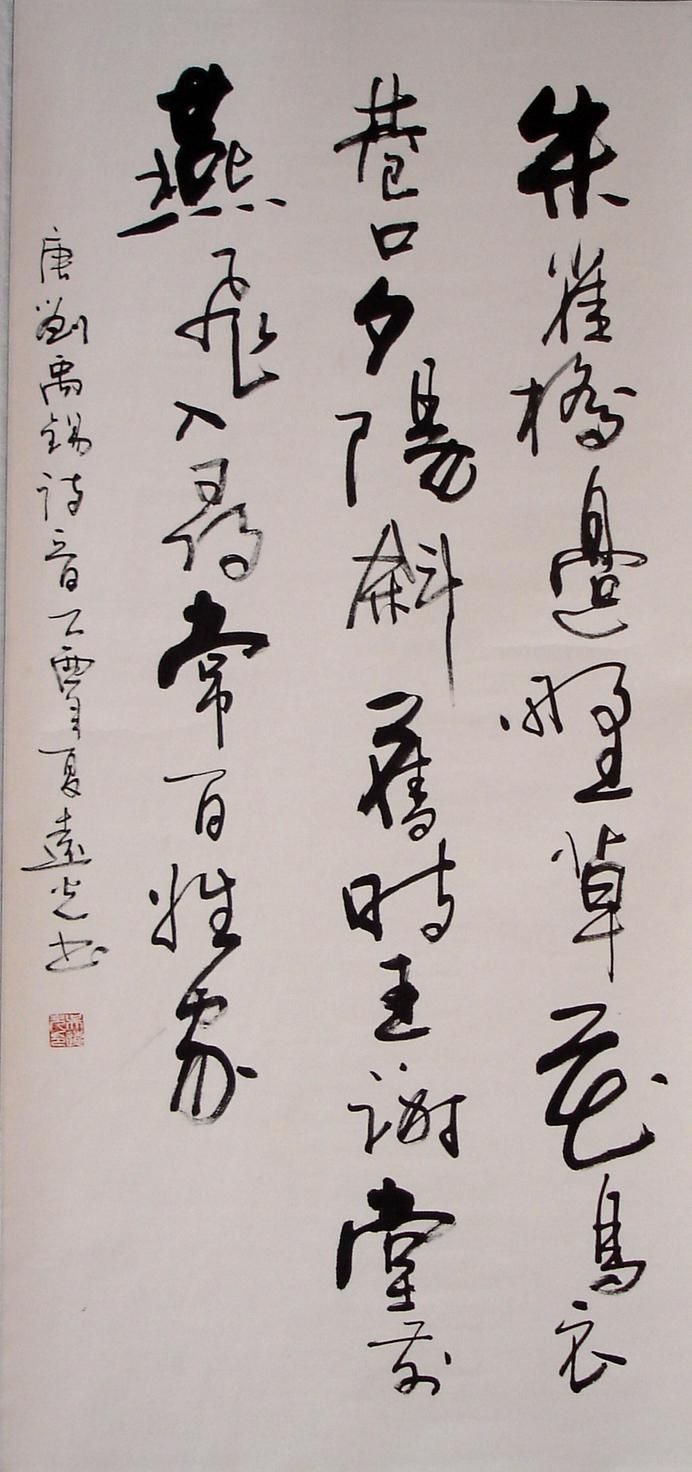 朱雀橋邊野草花烏衣
巷口夕陽斜舊時王謝堂前
燕飛入尋常百姓家
唐劉禹錫詩一首乙酉年夏遠光书